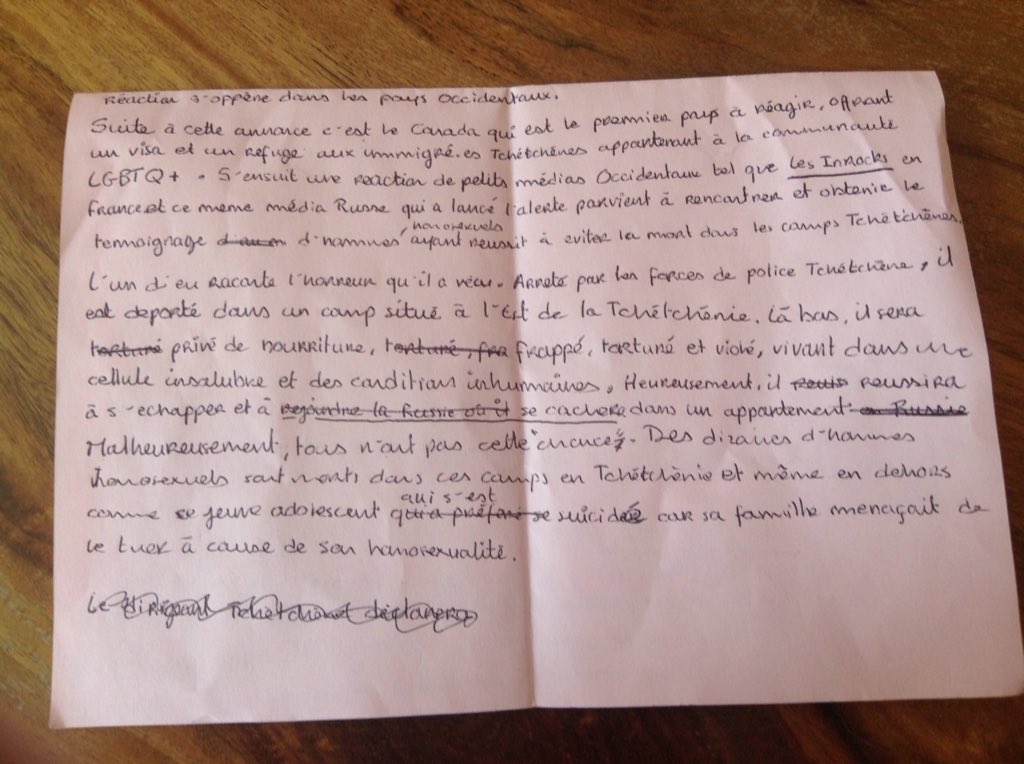 réaction s'oppère dans les pays occidentaux.
Suite à cette annonce c'est le Canada qui est le premier pays à réagir, offrant
un visa et un refuge aux immigré.es Tchétchènes appartenant à la communauté
LGBTQ+. S'ensuit une réaction de petits médias Occidentaux tel que Les InRocks en
France et ce meme média Russe qui a lancé l'alerte parvient à rencontrer et obtenir le
homosexuels
temoignage d'hommes ayant reussit à eviter la mort dans les camps Tchétchènes.
L'un d'eu raconte l'horreur qu'il a vécu. Arreté par les forces de police Tchétchène, il
est deporté dans un camp situé à l'Est de la Tchétchénie. Là bas, il sera
torturé privé de nourriture, torturé, fra frappé, torturé et violé, vivant dans une
cellule insalubre et des condition inhumaines. Heureusement, il reussira
à s'echapper et à rejoindre la Russie où il se cacher dans un appartement en Russie
Malheureusement, tous n'ont pas cette chance. Des dizaines d'hommes
homosexuels sont morts dans ces camps en Tchétchénie et même en dehors
qui s'est
comme ce jeune adolescent qui a préféré se suicidé car sa famille menaçait de
le tuer à cause de son homosexualité.
Le dirigeant Tchétchène déclarera